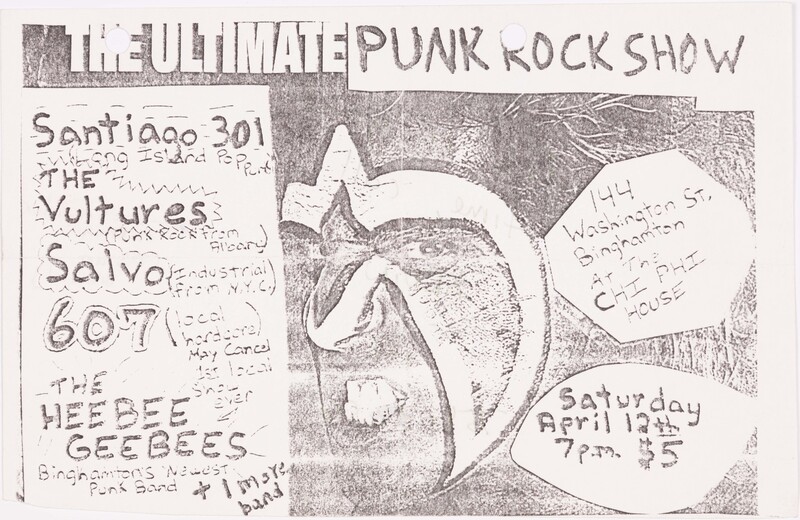 THE ULTIMATE PUNK ROCK SHOW
Santiago 301
Long Island Pop Punk
THE
Vultures
(Punk Rock from
Albany)
Salvo (Industrial
from N.Y.C.)
607 (local
hardcore)
May Cancel
1st local
show
ever
THE
HEEBEE
GEEBEES
Binghamton's Newest
Punk Band
+ 1 more
band
144
Washington St,
Binghamton
At The
CHI PHI
HOUSE
Saturday
April 12th
7p.m. $5